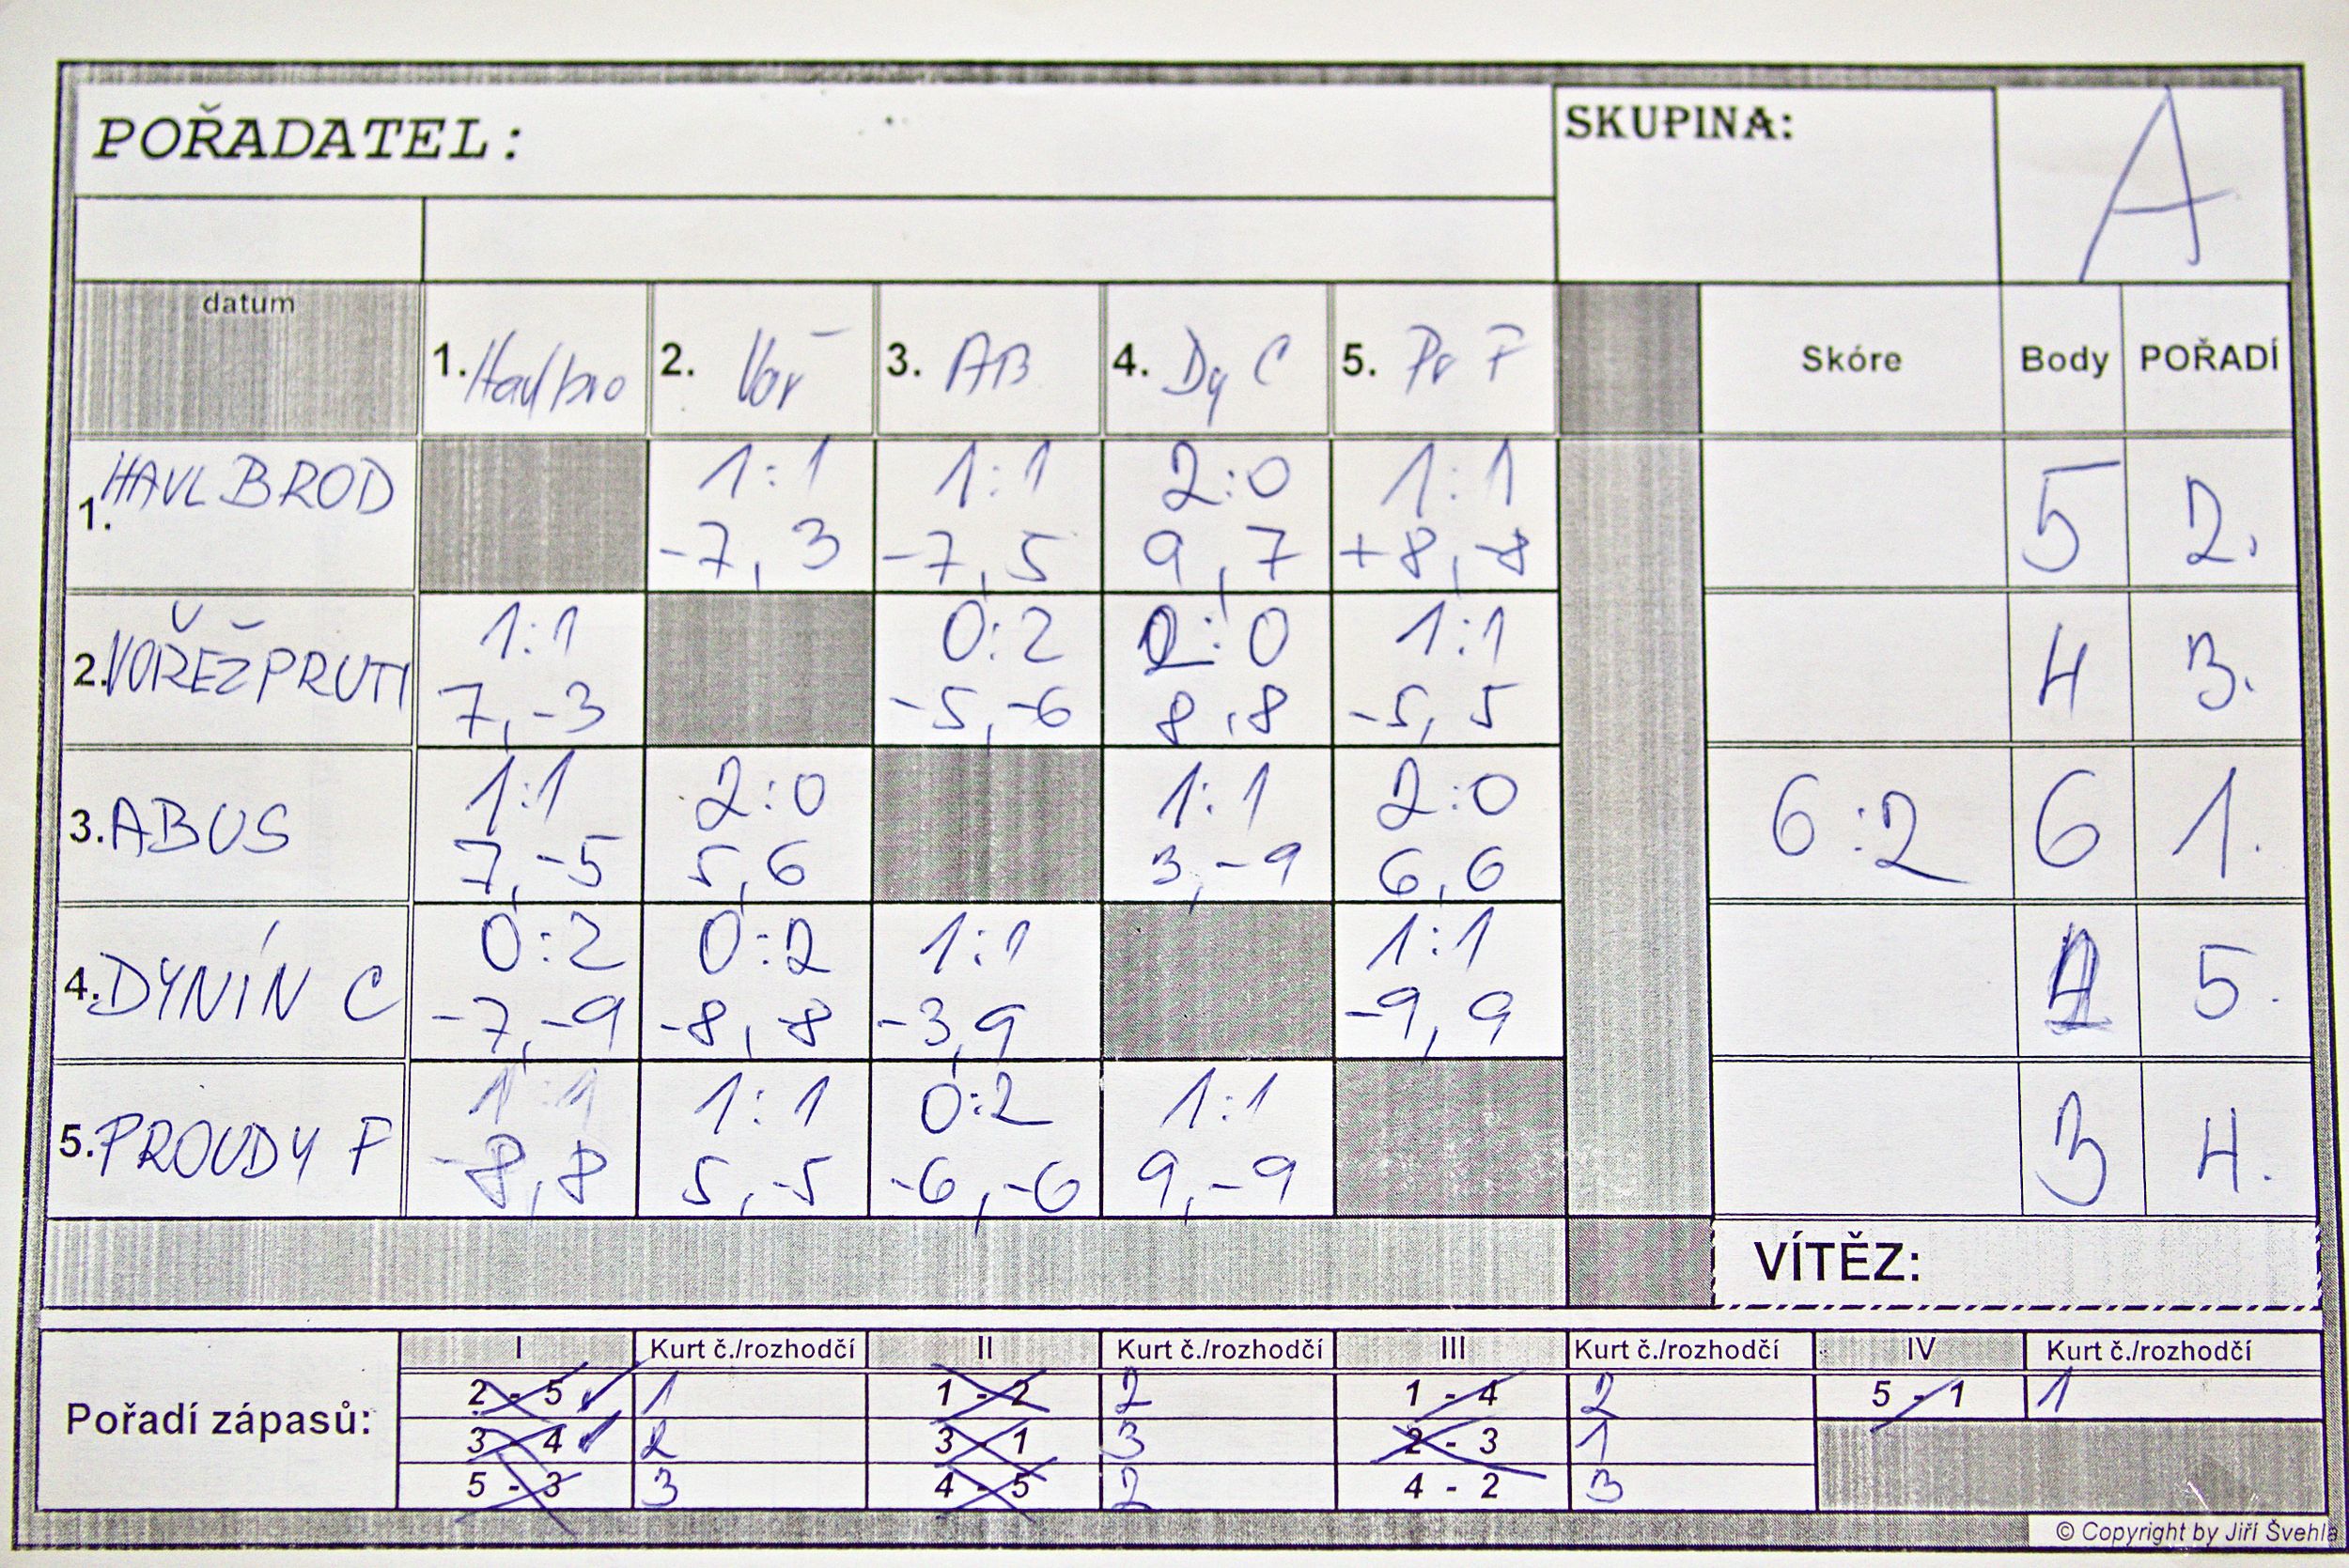 POŘADATEL:
SKUPINA: A
datum 1. Havlbro 2. Voř 3. AB 4. Dy C 5. Pr F Skóre Body POŘADÍ
1. HAVL BROD 1:1 1:1 2:0 1:1 5 2.
-7, 3 -7, 5 9, 7 +8, -8
2. VOŘEŽPRUTI 1:1 0:2 2:0 1:1 4 3.
7, -3 -5, -6 8, 8 -5, 5
3. ABUS 1:1 2:0 1:1 2:0 6:2 6 1.
7, -5 5, 6 3, -9 6, 6
4. DYNÍN C 0:2 0:2 1:1 1:1 5.
-7, -9 -8, -8 -3, 9 -9, 9
5. PROUDY F 1:1 1:1 0:2 1:1 3 4.
-8, 8 5, -5 -6, -6 9, -9
VÍTĚZ:
Pořadí zápasů:
I Kurt č./rozhodčí II Kurt č./rozhodčí III Kurt č./rozhodčí IV Kurt č./rozhodčí
2 - 5 1 1 - 2 2 1 - 4 2 5 - 1 1
3 - 4 2 3 - 1 3 2 - 3 1
5 - 3 3 4 - 5 2 4 - 2 3
© Copyright by Jiří Švehla